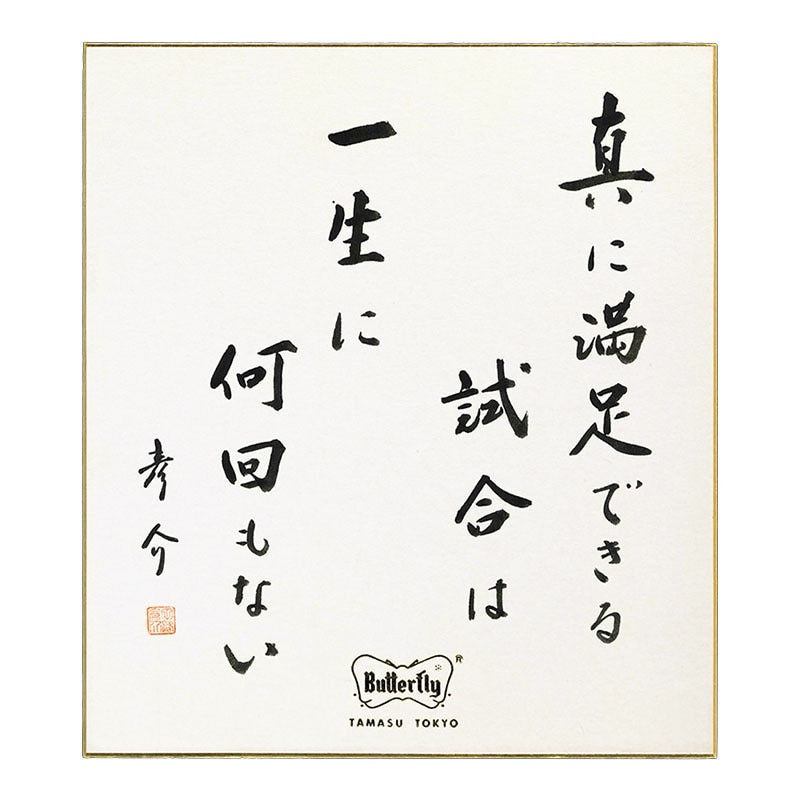 真に満足できる
試合は
一生に
何回もない
彦介
Butterfly ®
TAMASU TOKYO